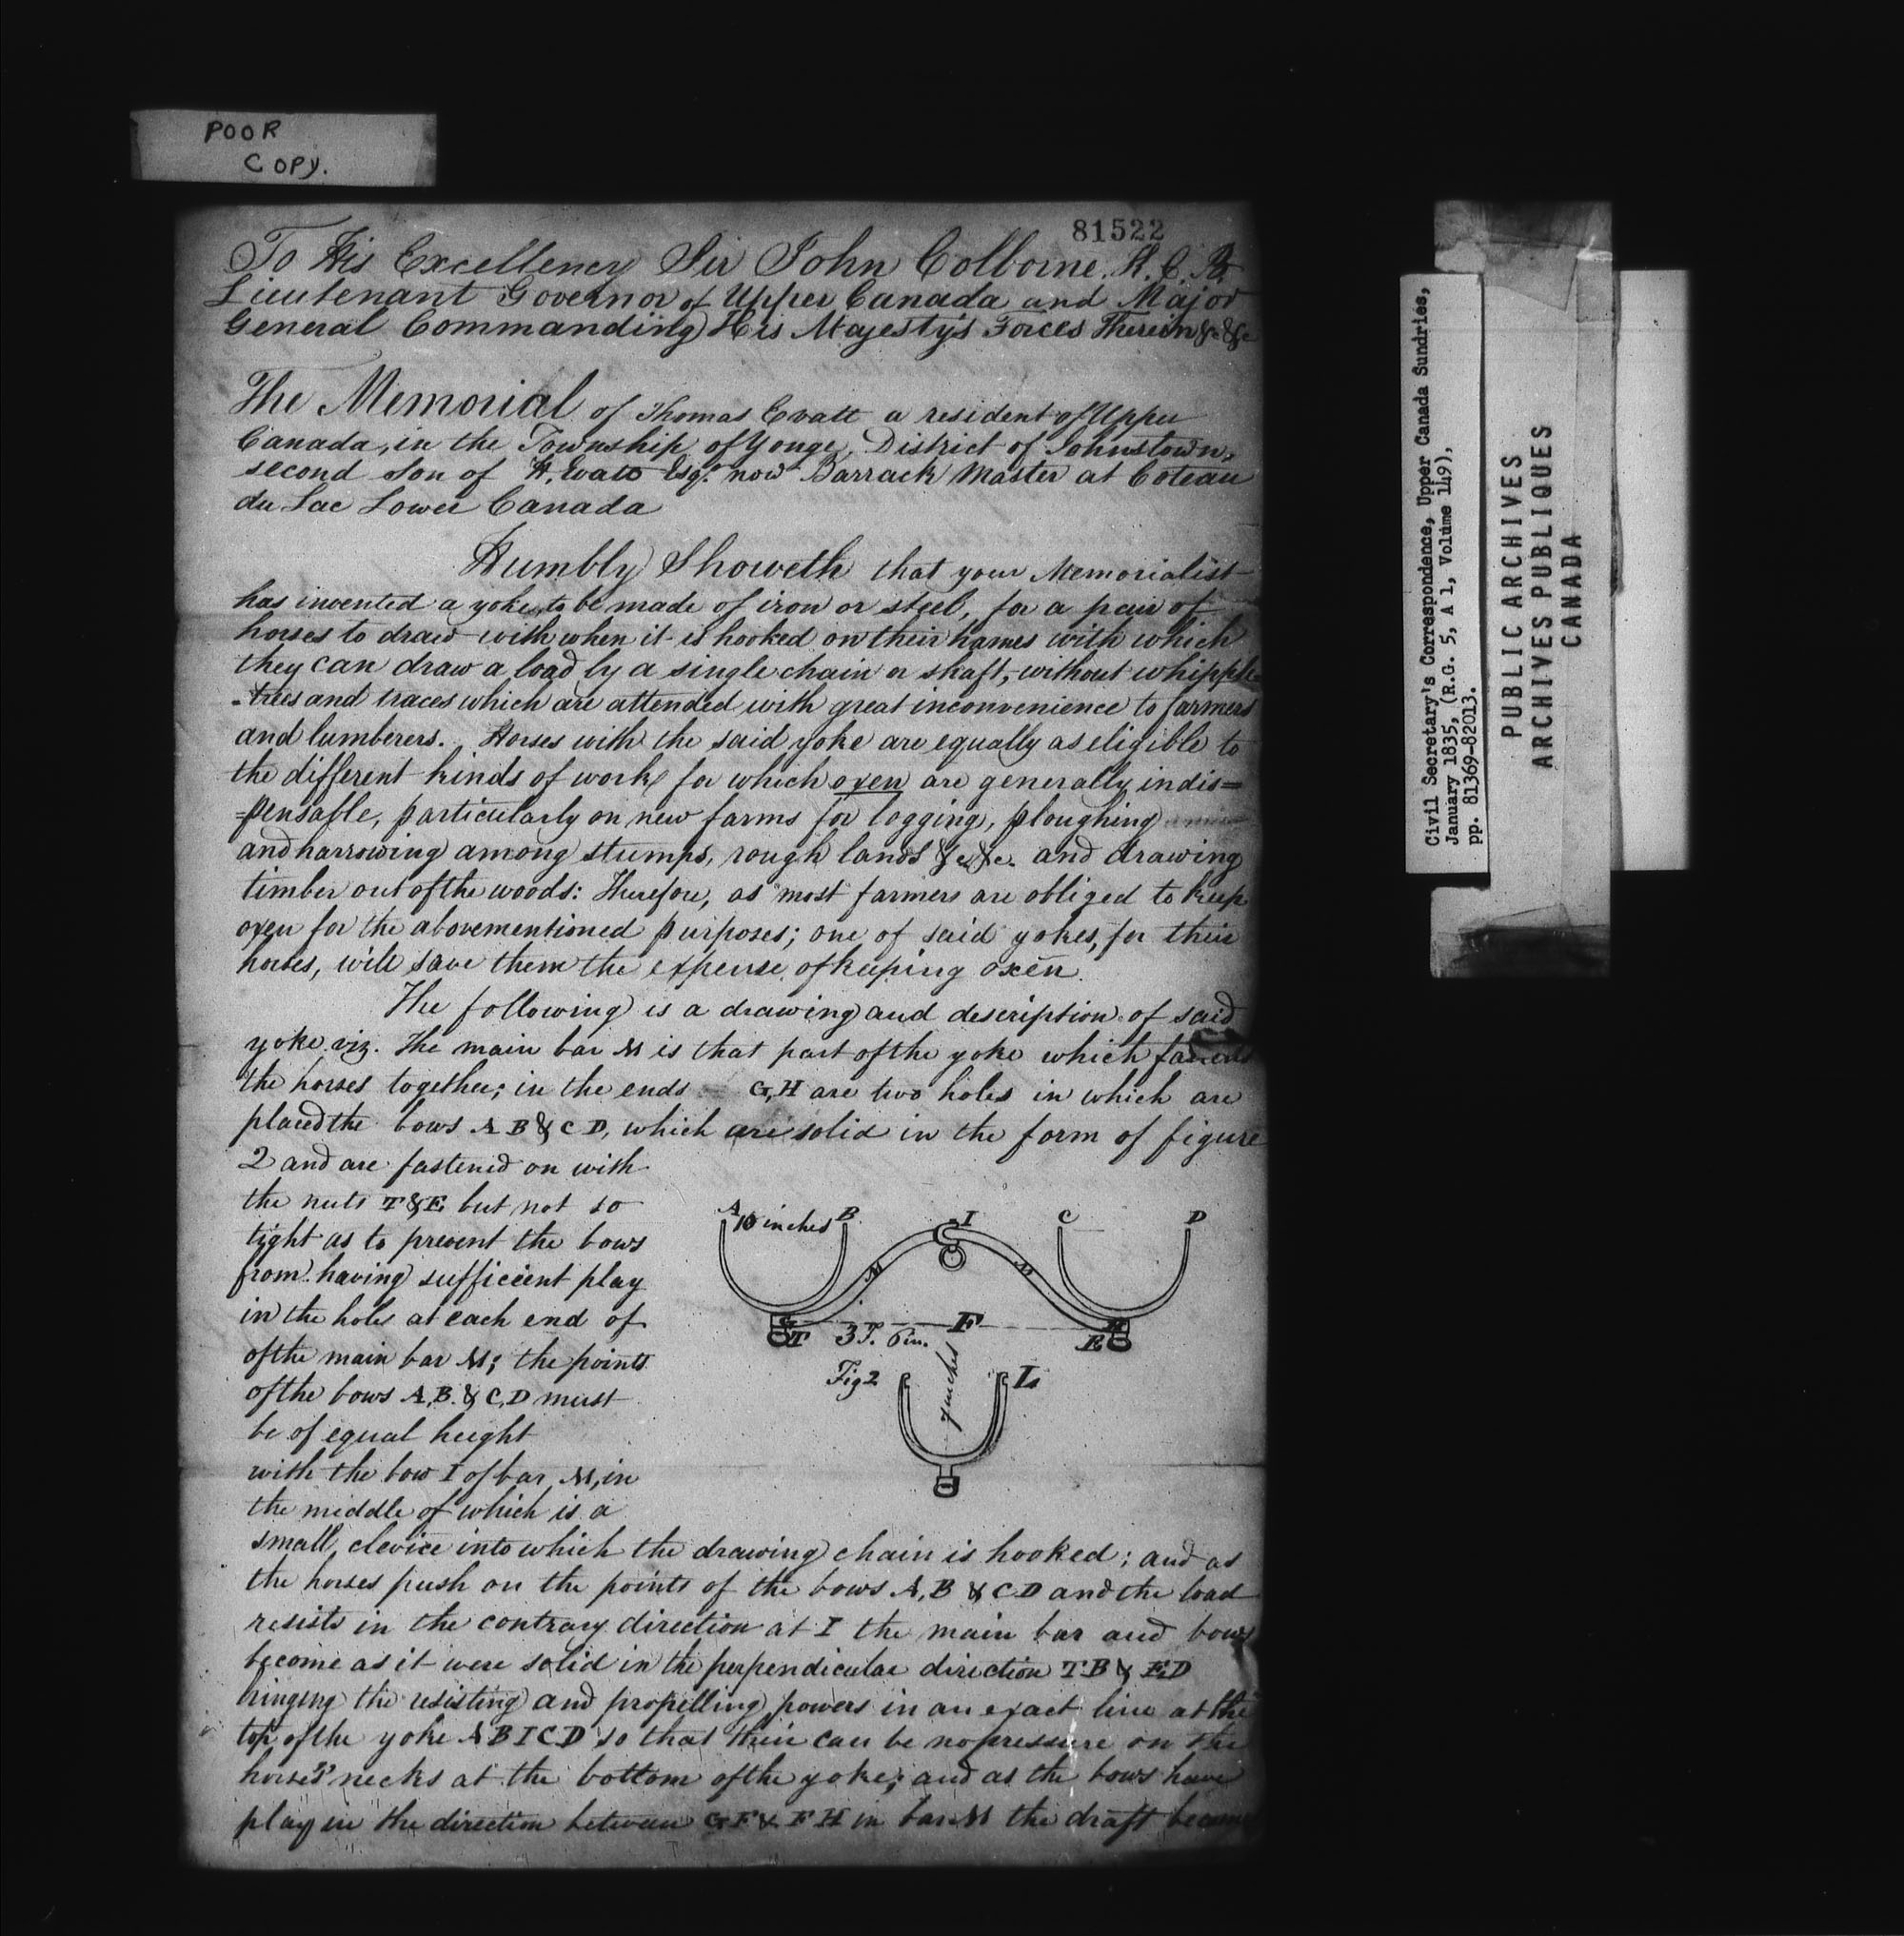 POOR
COPY.
81522
To His Excellency Sir John Colborne, K.C.B.
Lieutenant Governor of Upper Canada and Major
General Commanding His Majesty's Forces Therein &c &c
The Memorial of Thomas Evatt a resident of Upper
Canada, in the Township of Yonge, District of Johnstown,
second Son of H. Evatt Esqr. now Barrack Master at Coteau
du Lac Lower Canada
Humbly Showeth that your Memorialist
has invented a yoke, to be made of iron or steel, for a pair of
horses to draw with when it is hooked on their hames with which
they can draw a load by a single chain or shaft, without whipple-
-trees and traces which are attended with great inconvenience to farmers
and lumberers. Horses with the said yoke are equally as eligible to
the different kinds of work for which oxen are generally indis=
=pensable, particularly on new farms for logging, ploughing
and harrowing among stumps, rough lands &c &c. and drawing
timber out of the woods: Therefore, as most farmers are obliged to keep
oxen for the abovementioned purposes; one of said yokes, for their
horses, will save them the expense of keeping oxen.
The following is a drawing and description of said
yoke viz. The main bar M is that part of the yoke which fastens
the horses together; in the ends G,H are two holes in which are
placed the bows A B & C D, which are solid in the form of figure
2 and are fastened on with
the nuts T & E but not so
tight as to prevent the bows
from having sufficient play
in the holes at each end of
of the main bar M; the points
of the bows A,B. & C,D must
be of equal height
with the bow I of bar M, in
the middle of which is a
small clevice into which the drawing chain is hooked; and as
the horses push on the points of the bows A,B & C D and the load
resists in the contrary direction at I the main bar and bows
become as it were solid in the perpendicular direction T B & E D
bringing the resisting and propelling powers in an exact line at the
top of the yoke A B I C D so that their can be no pressure on the
horses' necks at the bottom of the yoke; and as the bows have
play in the direction between G F & F H in bar M the draft become
A 10 inches B I C D
M M
G H
T 3F. 6in. F E
Fig 2 L
inches
Civil Secretary's Correspondence, Upper Canada Sundries,
January 1835, (R.G. 5, A 1, Volume 149),
pp. 81369-82013.
PUBLIC ARCHIVES
ARCHIVES PUBLIQUES
CANADA